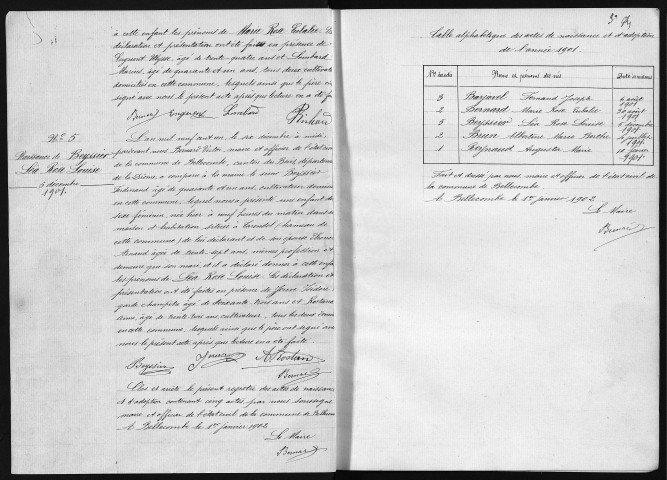 à cette enfant les prénoms de Marie Rose Eulalie. La
déclaration et présentation ont été faites en présence de
Eugène, âgé de trente quatre ans et Lombard
Marius, âgé de quarante et un ans, tous deux cultivateurs
domiciliés en cette commune, lesquels ainsi que le père ont
signé avec nous le présent acte après que lecture en a été faite
Lombard
N° 5
Naissance de Beyssier
Léa Rose Louise
5 décembre
1901.
L'an mil neuf cent un, le six décembre à midi
pardevant nous Bernard Victor, maire et officier de l'état civil
de la commune de Bellecombe, canton du Buis, département
de la Drôme, a comparu à la mairie le sieur Beyssier
Ferdinand âgé de quarante et un ans, cultivateur demeurant
en cette commune, lequel nous a présenté une enfant du
sexe féminin, née hier à neuf heures du matin dans sa
maison d'habitation, située à Tarendol (hameau de
cette commune) de lui déclarant et de son épouse
âgée de trente sept ans, même profession et
demeure que son mari, et il a déclaré donner à cette enfant
les prénoms de Léa Rose Louise. Les déclaration et
présentation ont été faites en présence de Isidore
garde champêtre âgé de soixante trois ans et Rostan
âgé de trente trois ans cultivateur, tous les deux domiciliés
en cette commune, lesquels ainsi que le père ont signé avec
nous le présent acte après que lecture en a été faite
Beyssier A Rostan
Bernard
Clos et arrêté le présent registre des actes de naissance
et d'adoption contenant cinq actes, par nous soussigné
maire et officier de l'état civil de la commune de Bellecombe
à Bellecombe le 1er janvier 1902
Le Maire
Bernard
Table alphabétique des actes de naissance et d'adoption
de l'année 1901.
Nos des actes Noms et prénoms Date des naissances
3 Fernand Joseph 6 août 1901
2 Bernard Marie Rose Eulalie 30 août 1901
5 Beyssier Léa Rose Louise 5 décembre 1901
2 Brun Albertine Marie Berthe 4 juillet 1901
1 Reynaud Augusta Marie 10 février 1901
Fait et dressé par nous maire et officier de l'état civil de
la commune de Bellecombe
à Bellecombe le 1er janvier 1902
Le Maire
Bernard